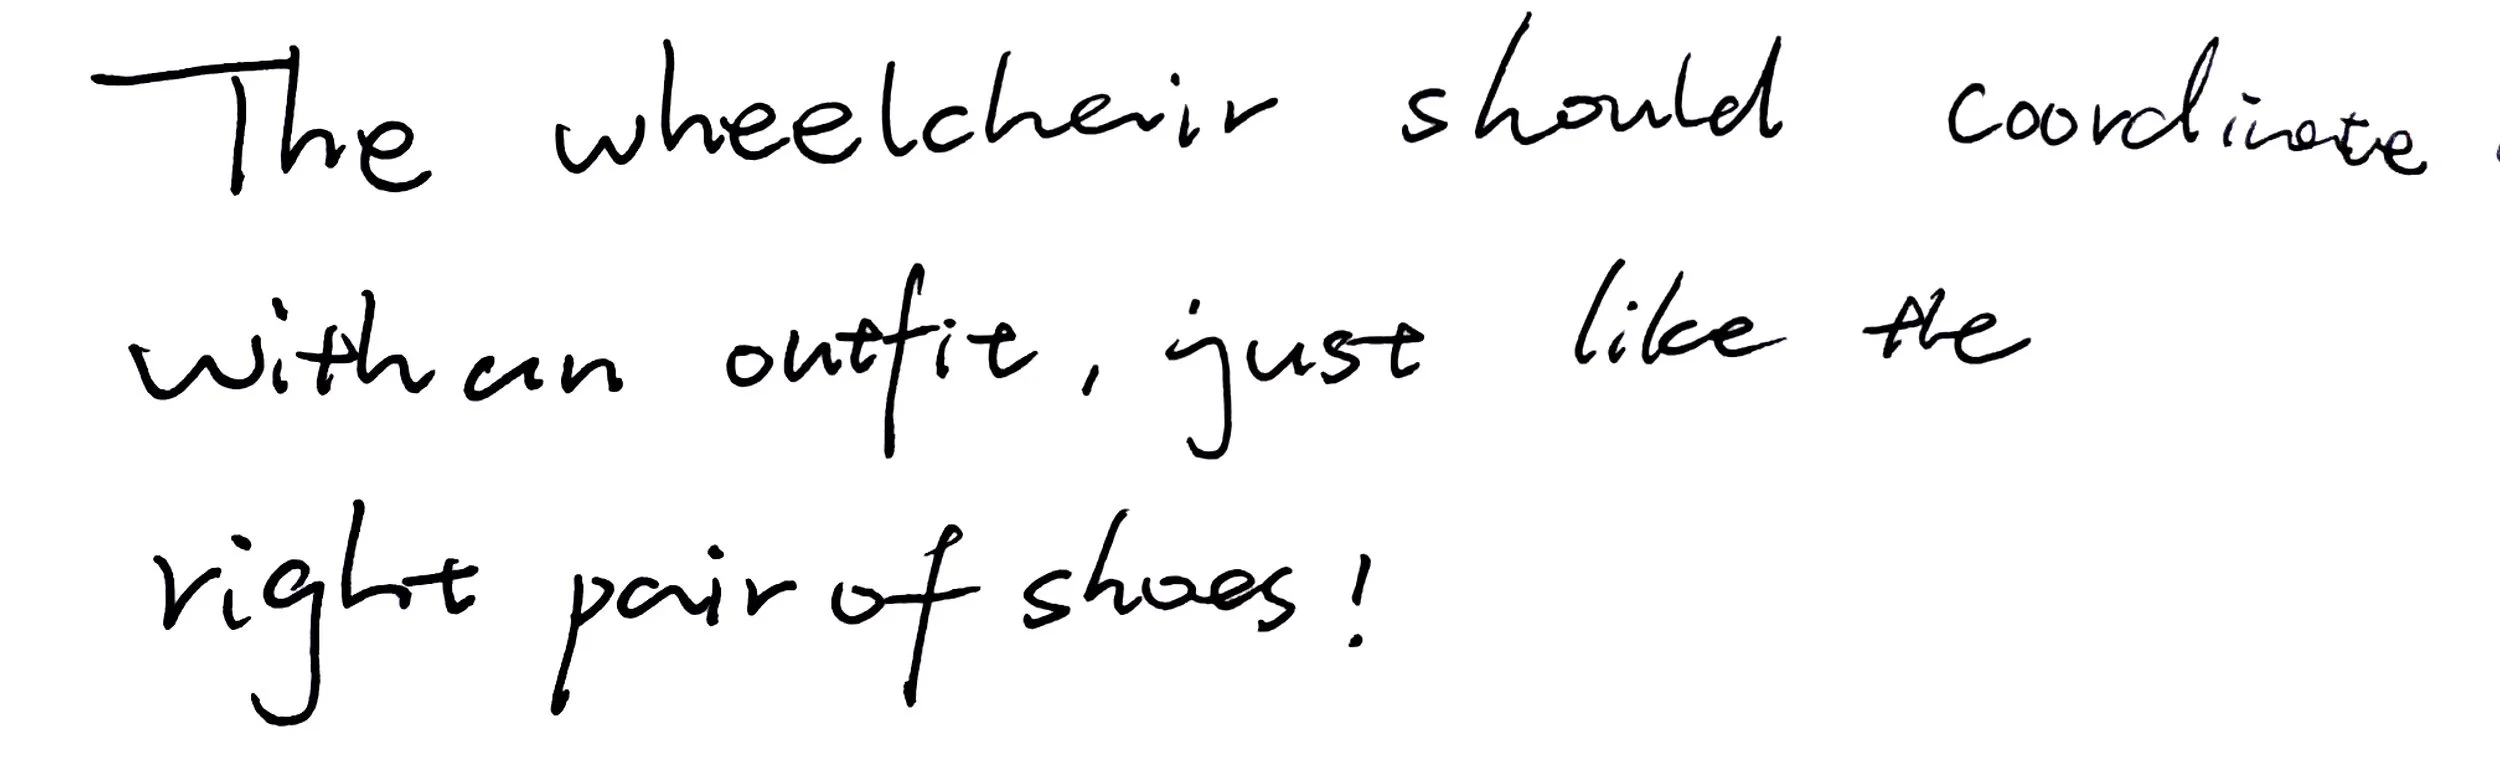 The wheelchair should coordinate
with an outfit, just like the
right pair of shoes!